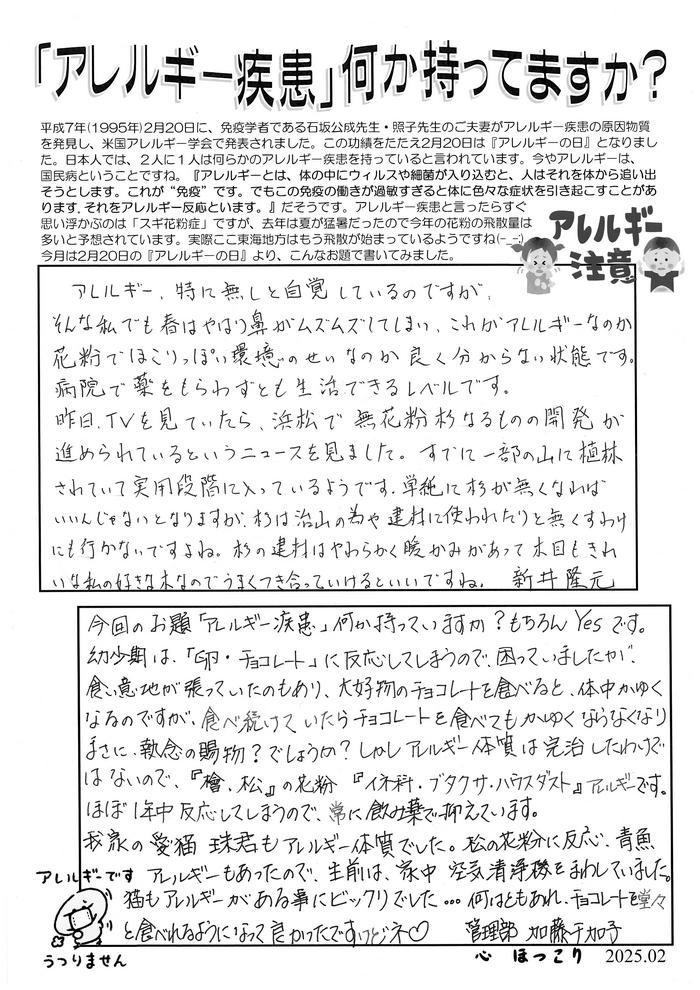 「アレルギー疾患」何か持ってますか？
平成7年(1995年)2月20日に、免疫学者である石坂公成先生・照子先生のご夫妻がアレルギー疾患の原因物質
を発見し、米国アレルギー学会で発表されました。この功績をたたえ2月20日は『アレルギーの日』となりまし
た。日本人では、2人に1人は何らかのアレルギー疾患を持っていると言われています。今やアレルギーは、
国民病ということですね。『アレルギーとは、体の中にウィルスや細菌が入り込むと、人はそれを体から追い出
そうとします。これが“免疫”です。でもこの免疫の働きが過敏すぎると体に色々な症状を引き起こすことがあ
ります。それをアレルギー反応といます。』だそうです。アレルギー疾患と言ったらすぐ
思い浮かぶのは「スギ花粉症」ですが、去年は夏が猛暑だったので今年の花粉の飛散量は
多いと予想されています。実際ここ東海地方はもう飛散が始まっているようですね(-_-;)
今月は2月20日の『アレルギーの日』より、こんなお題で書いてみました。
アレルギー
注意
アレルギー、特に無しと自覚しているのですが、
そんな私でも春はやはり鼻がムズムズしてしまい、これがアレルギーなのか
花粉でほこりっぽい環境のせいなのか良く分からない状態です。
病院で薬をもらわずとも生活できるレベルです。
昨日、TVを見ていたら、浜松で無花粉杉なるものの開発が
進められているというニュースを見ました。すでに一部の山に植林
されていて実用段階に入っているようです。単純に杉が無くなれば
いいんじゃないとなりますが、杉は治山の為や建材に使われたりと無くすわけ
にも行かないですよね。杉の建材はやわらかく暖かみがあって木目もきれ
いな私の好きな木なのでうまくつき合っていけるといいですね。 新井隆元
今回のお題「アレルギー疾患」何か持っていますか？もちろんYesです。
幼少期は、「卵・チョコレート」に反応してしまうので、困っていましたが、
食い意地が張っていたのもあり、大好物のチョコレートを食べると、体中かゆく
なるのですが、食べ続けていたらチョコレートを食べてもかゆくならなくなり
まさに、執念の賜物？でしょうか？しかしアレルギー体質は完治したわけで
はないので、『檜、松』の花粉『イネ科・ブタクサ・ハウスダスト』アレルギーです。
ほぼ1年中反応してしまうので、常に飲み薬で抑えています。
我家の愛猫 珠君もアレルギー体質でした。松の花粉に反応、青魚
アレルギーもあったので、生前は、家中 空気清浄機をまわしていました。
猫もアレルギーがある事にビックリでした…何はともあれ、チョコレートを堂々
と食べれるようになって良かったですけどネ♡ 管理部 加藤千加子
アレルギーです
うつりません
心 ほっこり 2025.02